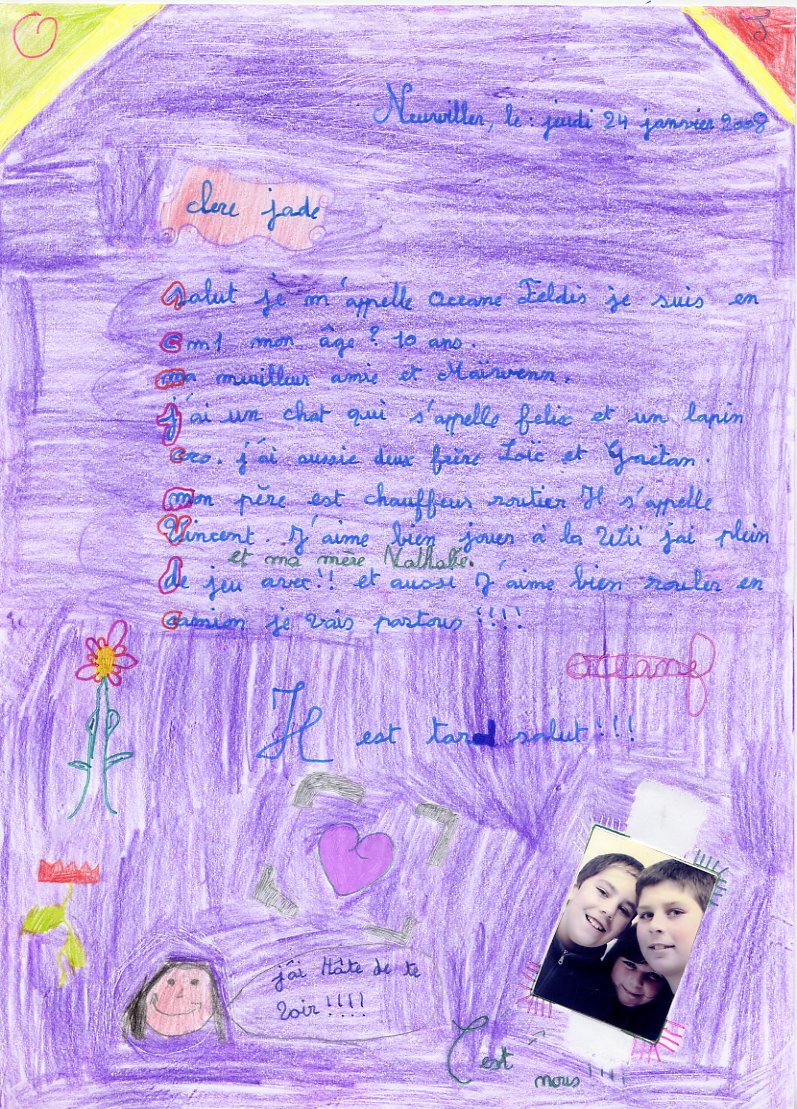 Neuviller, le : jeudi 24 janvier 2008
chere jade
salut je m'appelle Oceane Feldis je suis en
cm1 mon âge ? 10 ans.
ma meuilleur amie et Maïwenn.
j'ai un chat qui s'appelle felix et un lapin
coco. j'ai aussie deux frère Loïc et Gaëtan.
mon père est chauffeur routier Il s'appelle
Vincent. J'aime bien jouer à la Wii jai plein
et ma mère Nathalie.
de jeu avec!! et aussi J'aime bien rouler en
camion je vais partous !!!!
oceane
Il est tard salut!!!
j'ai Hâte de te
voir !!!!
C'est
nous !!!!